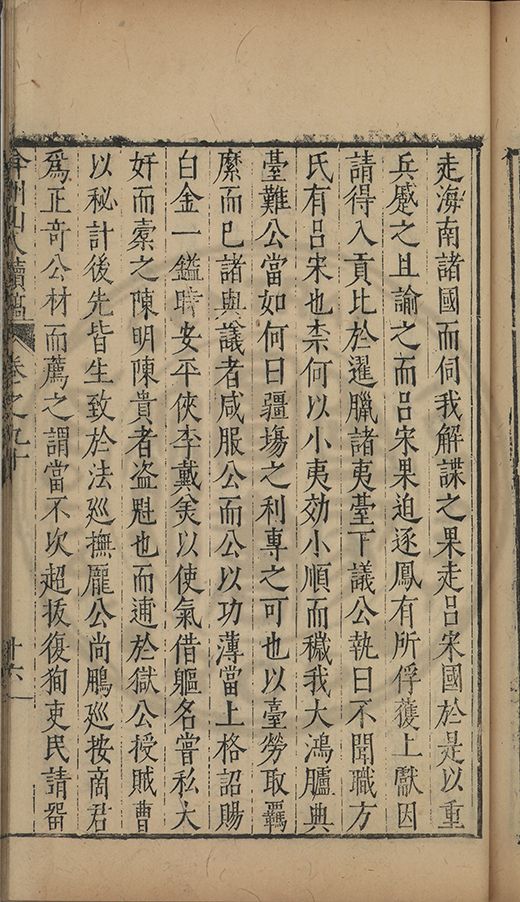 走海南諸國而伺我解諜之果走呂宋國於是以重
兵蹙之且諭之而呂宋果迫逐鳳有所俘獲上獻因
請得入貢比於暹臘諸夷臺下議公執曰不聞職方
氏有呂宋也柰何以小夷効小順而穢我大鴻臚典
臺難公當如何曰疆埸之利專之可也以臺勞取羈
縻而已諸與議者咸服公而公以功薄當上格詔賜
白金一鎰時安平俠李戴炗以使氣借軀名嘗私大
奸而橐之陳明陳貴者盗魁也而逋於獄公授賊曹
以秘計後先皆生致於法廵撫龐公尚鵬廵按商君
爲正竒公材而薦之謂當不次超拔復狥吏民請畱
弇州山人續稿 卷之九十 廿六